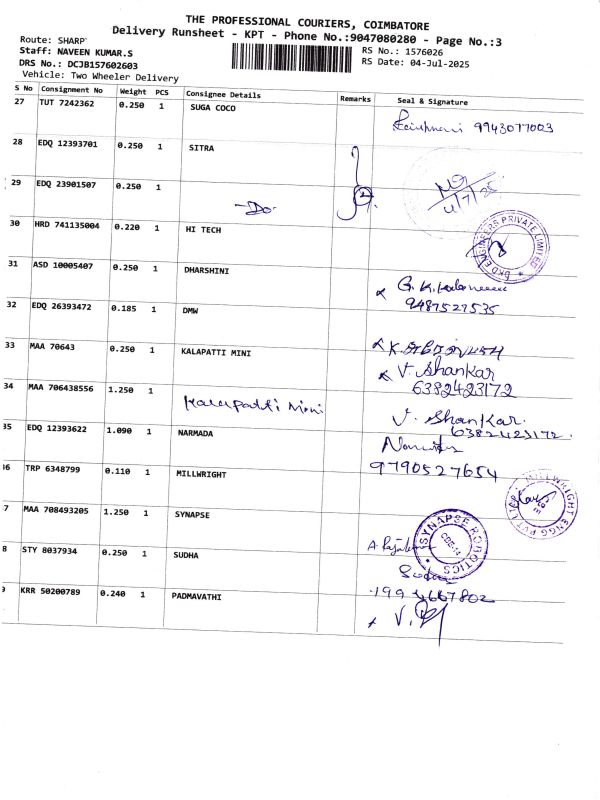 THE PROFESSIONAL COURIERS, COIMBATORE
Delivery Runsheet - KPT - Phone No.:9047080280 - Page No.:3
Route: SHARP
Staff: NAVEEN KUMAR.S
DRS No.: DCJB157602603
Vehicle: Two Wheeler Delivery
RS No.: 1576026
RS Date: 04-Jul-2025
S No Consignment No Weight PCS Consignee Details Remarks Seal & Signature
27 TUT 7242362 0.250 1 SUGA COCO
9943077003
28 EDQ 12393701 0.250 1 SITRA
29 EDQ 23901507 0.250 1 -Do-
4/7/25
30 HRD 741135004 0.220 1 HI TECH
ENGINEERS PRIVATE LIMITED
31 ASD 10005407 0.250 1 DHARSHINI
G.K.
9487527535
32 EDQ 26393472 0.185 1 DMW
33 MAA 70643 0.250 1 KALAPATTI MINI
V. Shankar
6382423172
34 MAA 706438556 1.250 1 Kalapatti Mini
V. Shankar.
6382423172.
35 EDQ 12393622 1.090 1 NARMADA
9790527654
36 TRP 6348799 0.110 1 MILLWRIGHT
MILLWRIGHT ENGG PVT LTD
37 MAA 708493205 1.250 1 SYNAPSE
SYNAPSE ROBOTICS
CBE-14
8 STY 8037934 0.250 1 SUDHA
9 KRR 50200789 0.240 1 PADMAVATHI